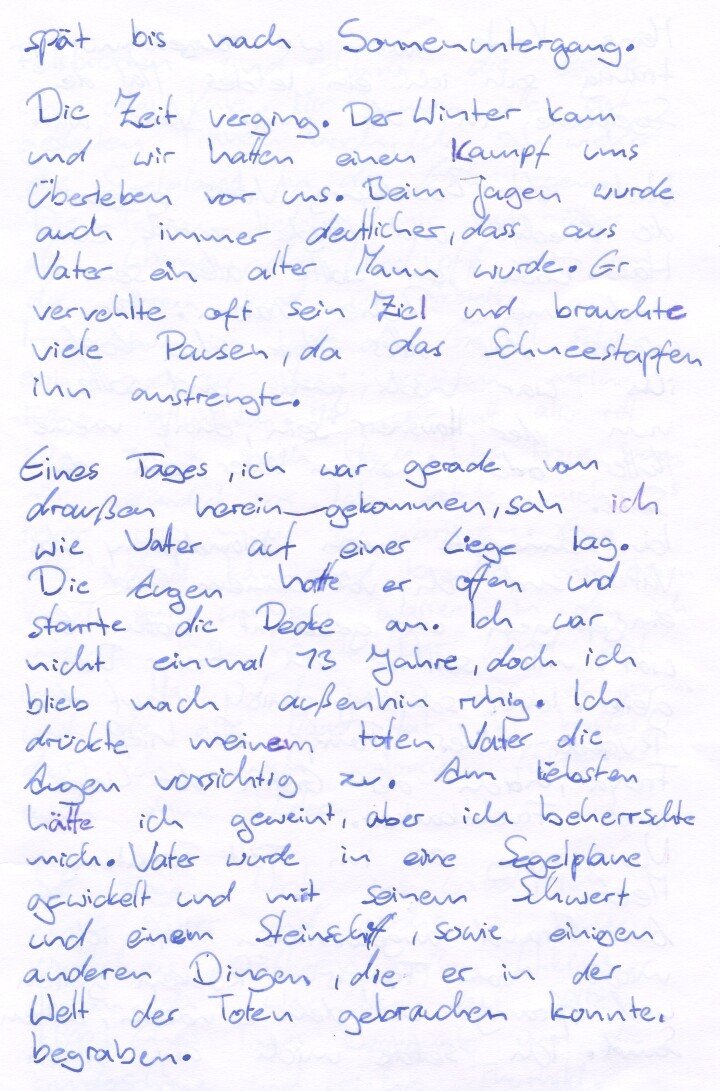 spät bis nach Sonnenuntergang.
Die Zeit verging. Der Winter kam
und wir hatten einen Kampf ums
Überleben vor uns. Beim Jagen wurde
auch immer deutlicher, dass aus
Vater ein alter Mann wurde. Er
vervehlte oft sein Ziel und brauchte
viele Pausen, da das Schneestapfen
ihn anstrengte.
Eines Tages, ich war gerade von
draußen herein gekommen, sah ich
wie Vater auf einer Liege lag.
Die Augen hatte er offen und
starrte die Decke an. Ich war
nicht einmal 13 Jahre, doch ich
blieb nach außenhin ruhig. Ich
drückte meinem toten Vater die
Augen vorsichtig zu. Am liebsten
hätte ich geweint, aber ich beherrschte
mich. Vater wurde in eine Segelplane
gewickelt und mit seinem Schwert
und einem Steinschiff, sowie einigen
anderen Dingen, die er in der
Welt der Toten gebrauchen konnte,
begraben.